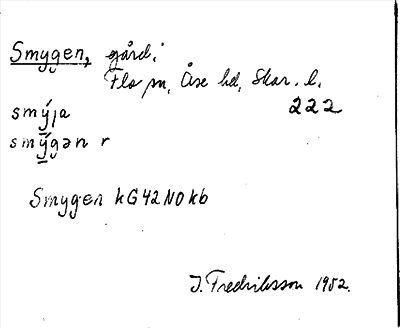 Smygen, gård i
Flo sn, Åse hd, Skar. l.
smýja 222
smýgən r
Smygen kG42NOkb
J. Fredriksson 1952.